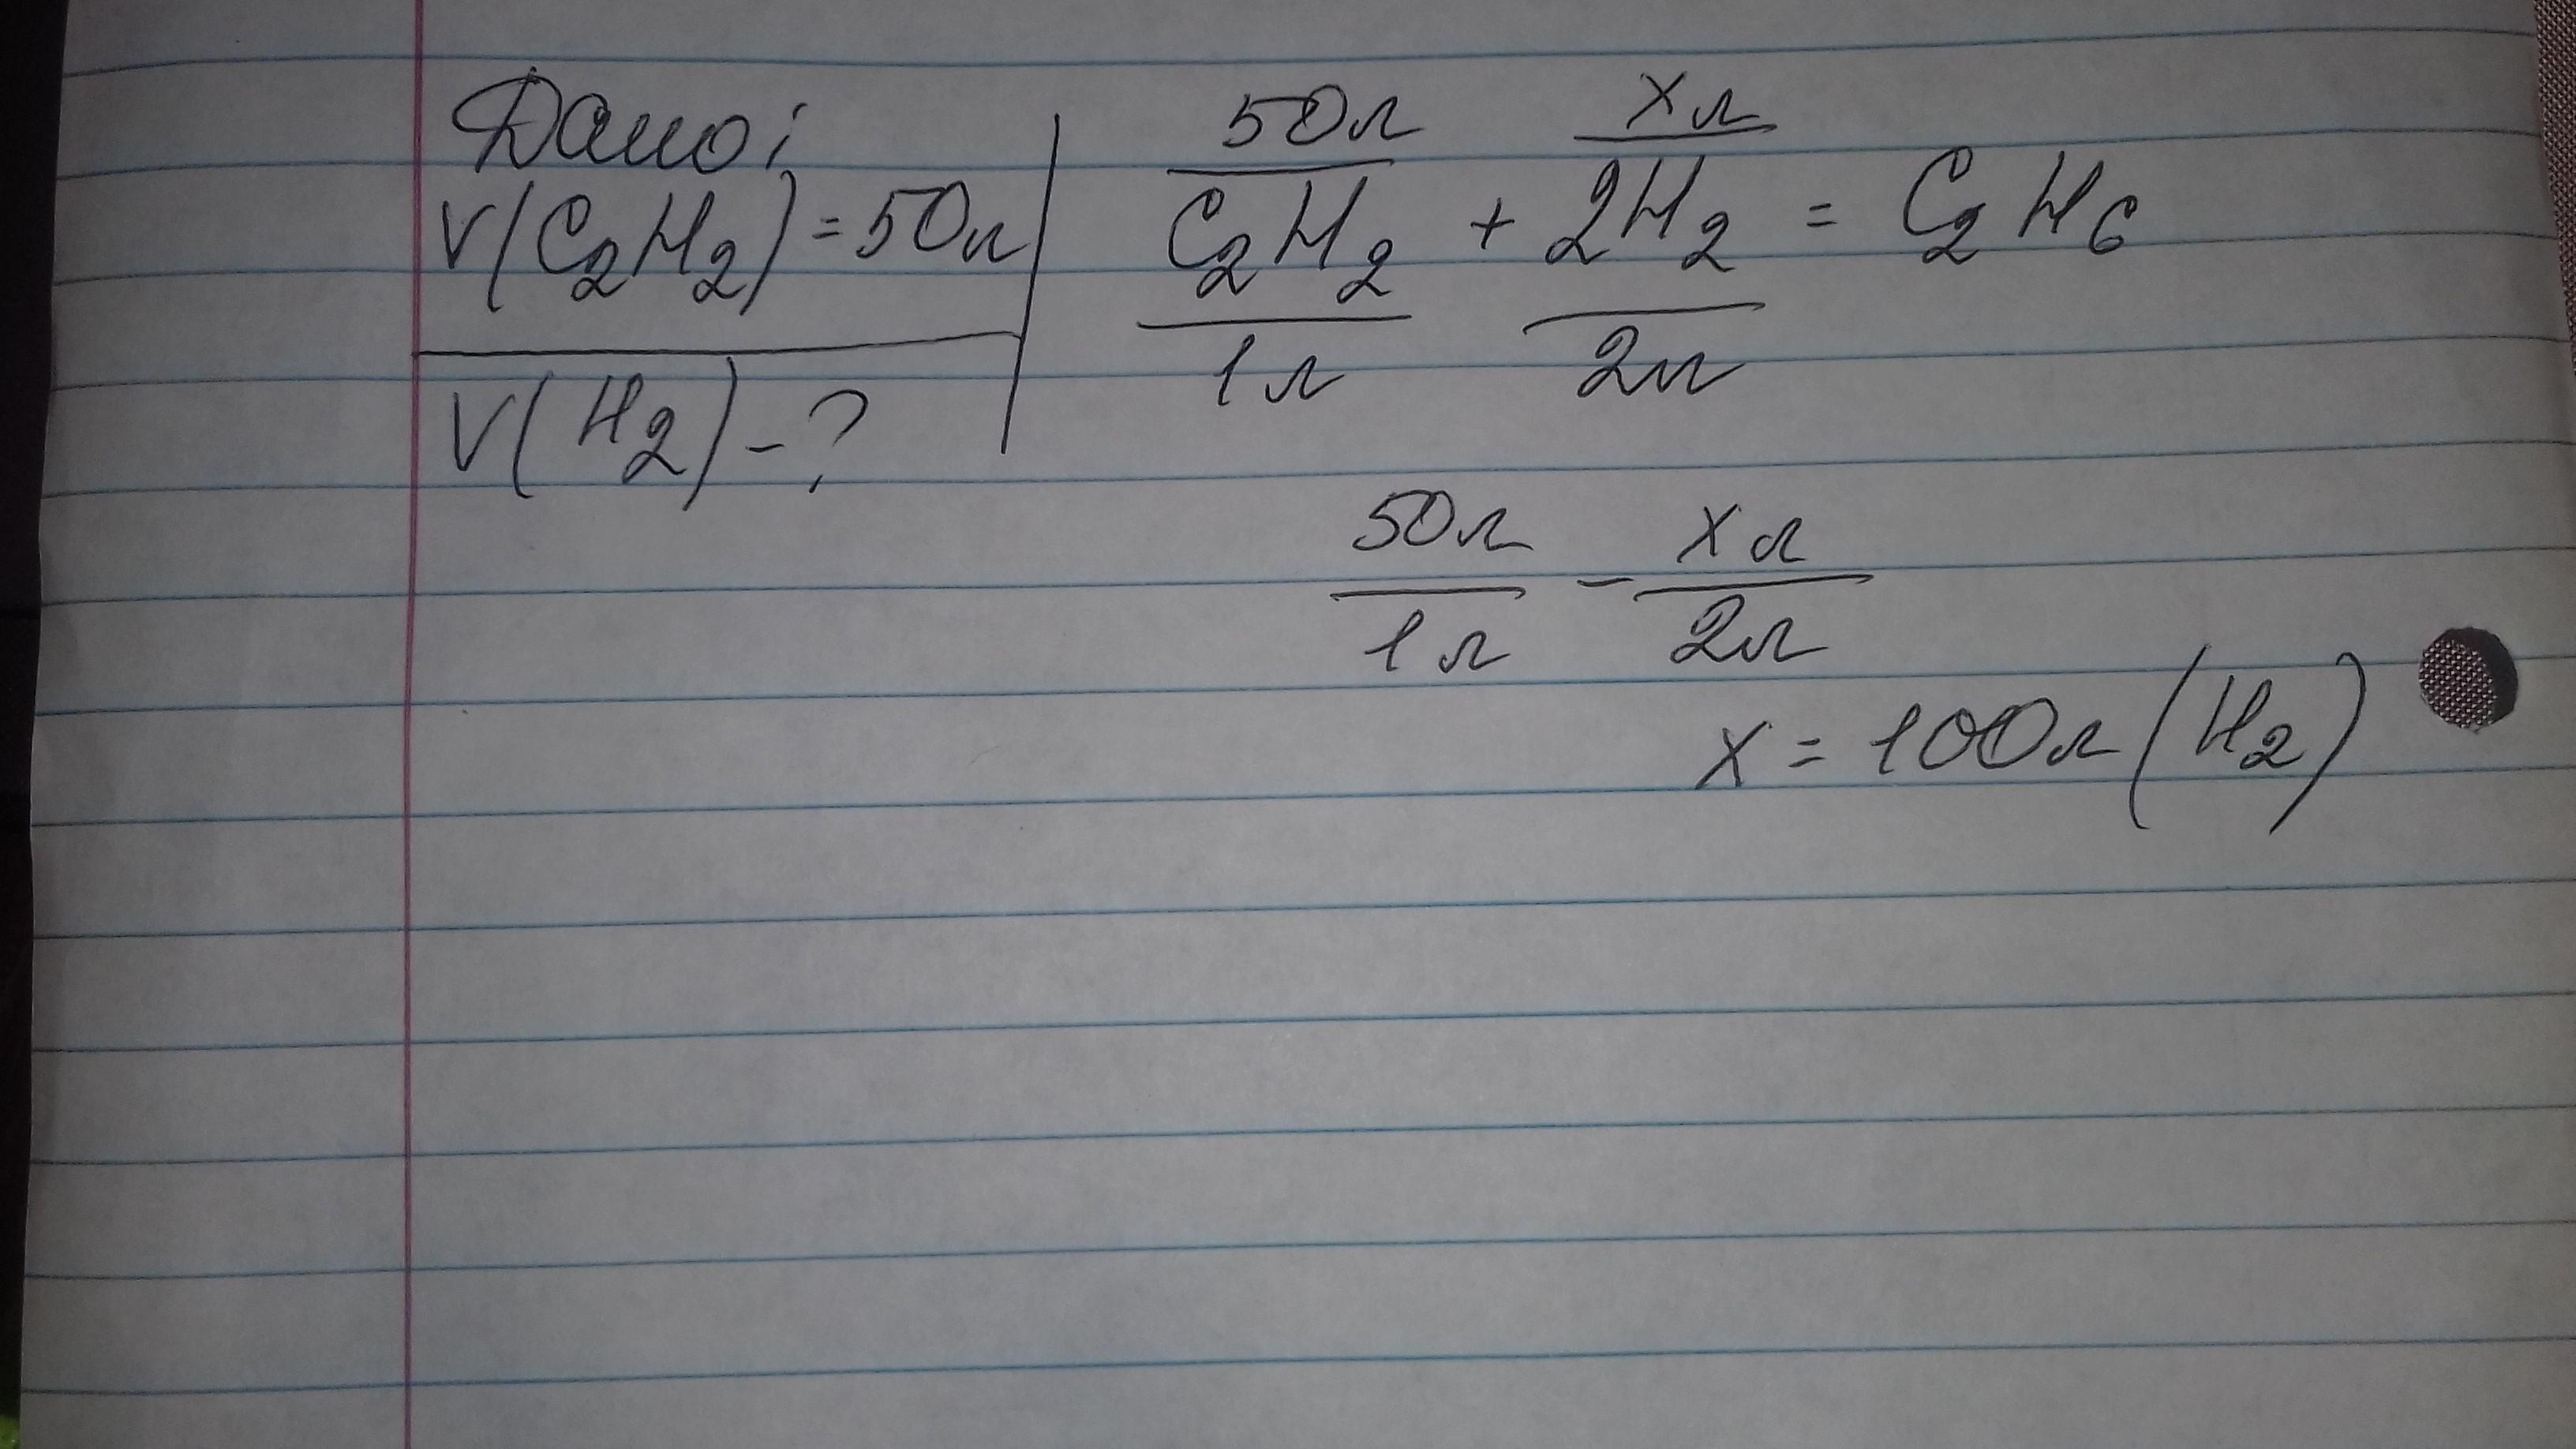 Дано:
V(C2H2)=50л
V(H2)-?
50л xл
C2H2 + 2H2 = C2H6
1л 2л
50л - xл
1л 2л
x = 100л (H2)